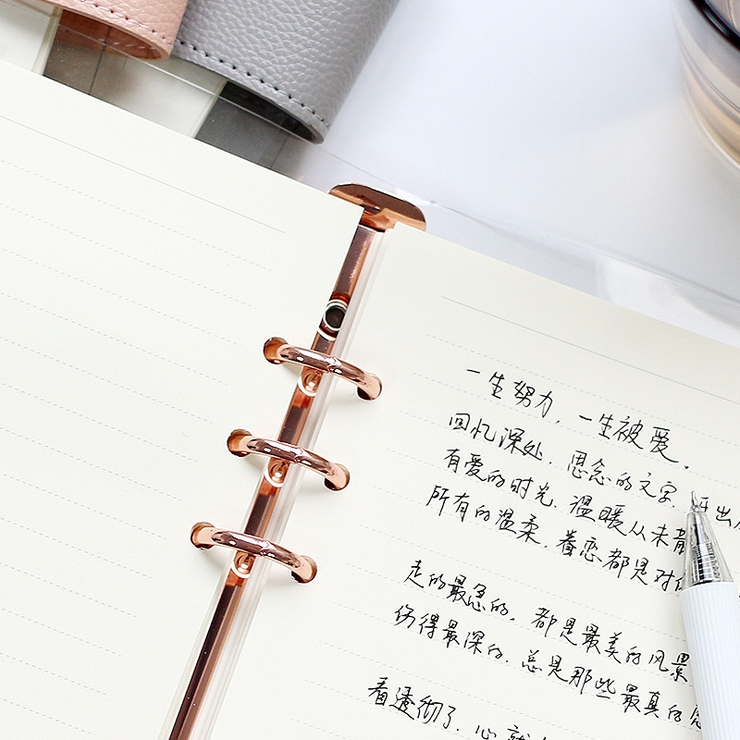 一生努力，一生被爱。
回忆深处，思念的文字，开出
有爱的时光，温暖从未
所有的温柔，眷恋都是对
走的最急的，都是最美的风景
伤得最深的，总是那些最真的
看透彻了，心就